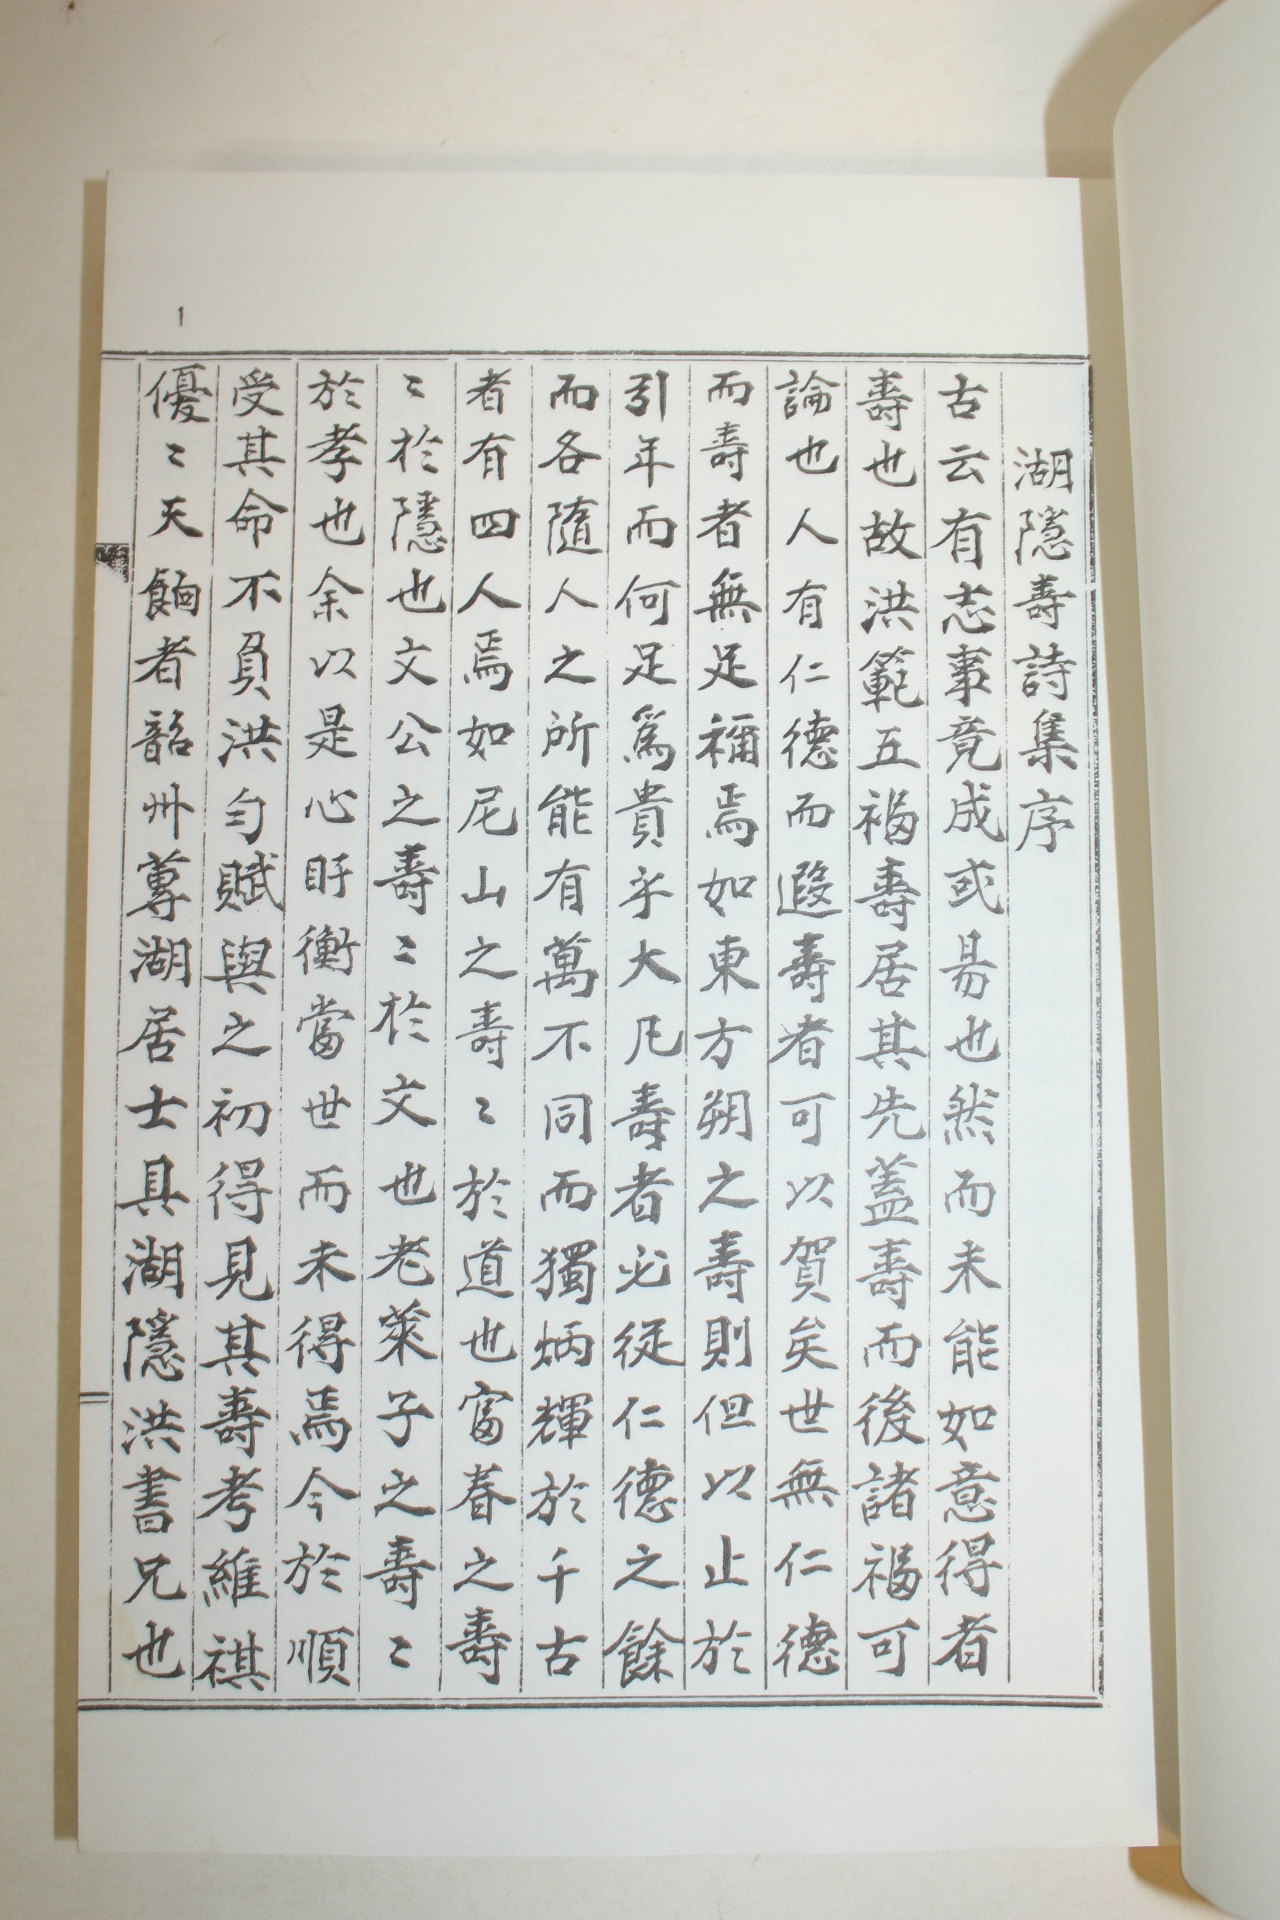 湖隱壽詩集序
古云有志事竟成或易也然而未能如意得者
壽也故洪範五福壽居其先蓋壽而後諸福可
論也人有仁德而遐壽者可以賀矣世無仁德
而壽者無足稱焉如東方朔之壽則但以止於
引年而何足爲貴乎大凡壽者必從仁德之餘
而各隨人之所能有萬不同而獨炳輝於千古
者有四人焉如尼山之壽〻於道也富春之壽
〻於隱也文公之壽〻於文也老萊子之壽〻
於孝也余以是心盱衡當世而未得焉今於順
受其命不負洪勻賦與之初得見其壽考維祺
優〻天餉者韶州蓴湖居士具湖隱洪書兄也
1